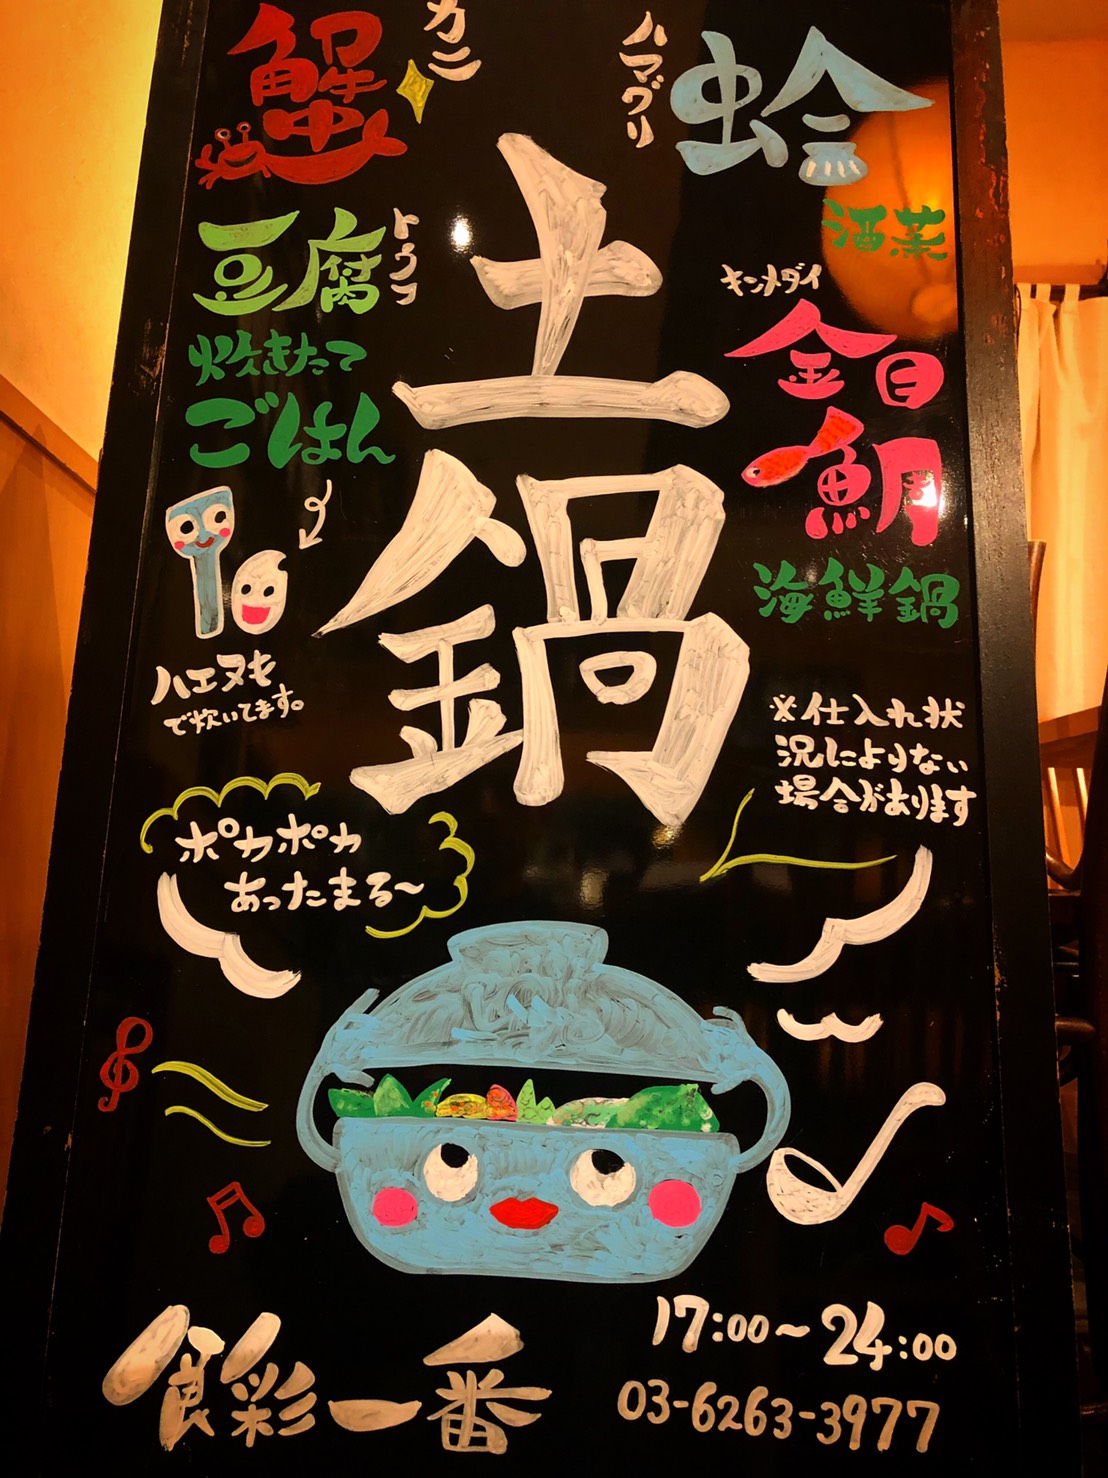 蟹
カニ
蛤
ハマグリ
酒蒸
豆腐
トウフ
キンメダイ
金目鯛
海鮮鍋
土鍋
炊きたて
ごはん
ハエヌキ
で炊いてます。
※仕入れ状
況によりない
場合があります
ポカポカ
あったまる〜
食彩一番
17:00〜24:00
03-6263-3977